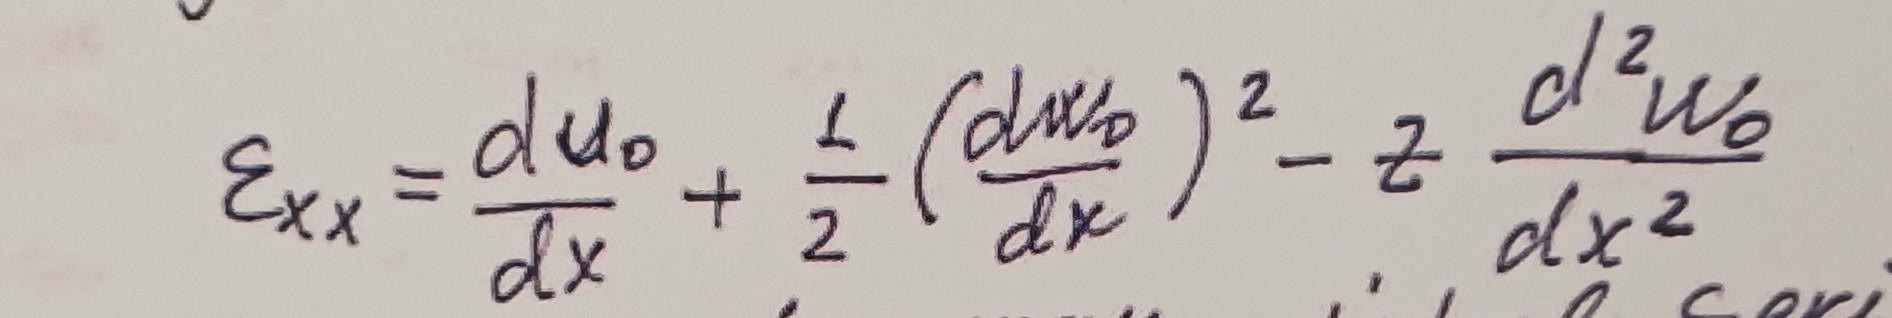 εxx = du₀/dx + 1/2 (dw₀/dx)² - z d²w₀/dx²